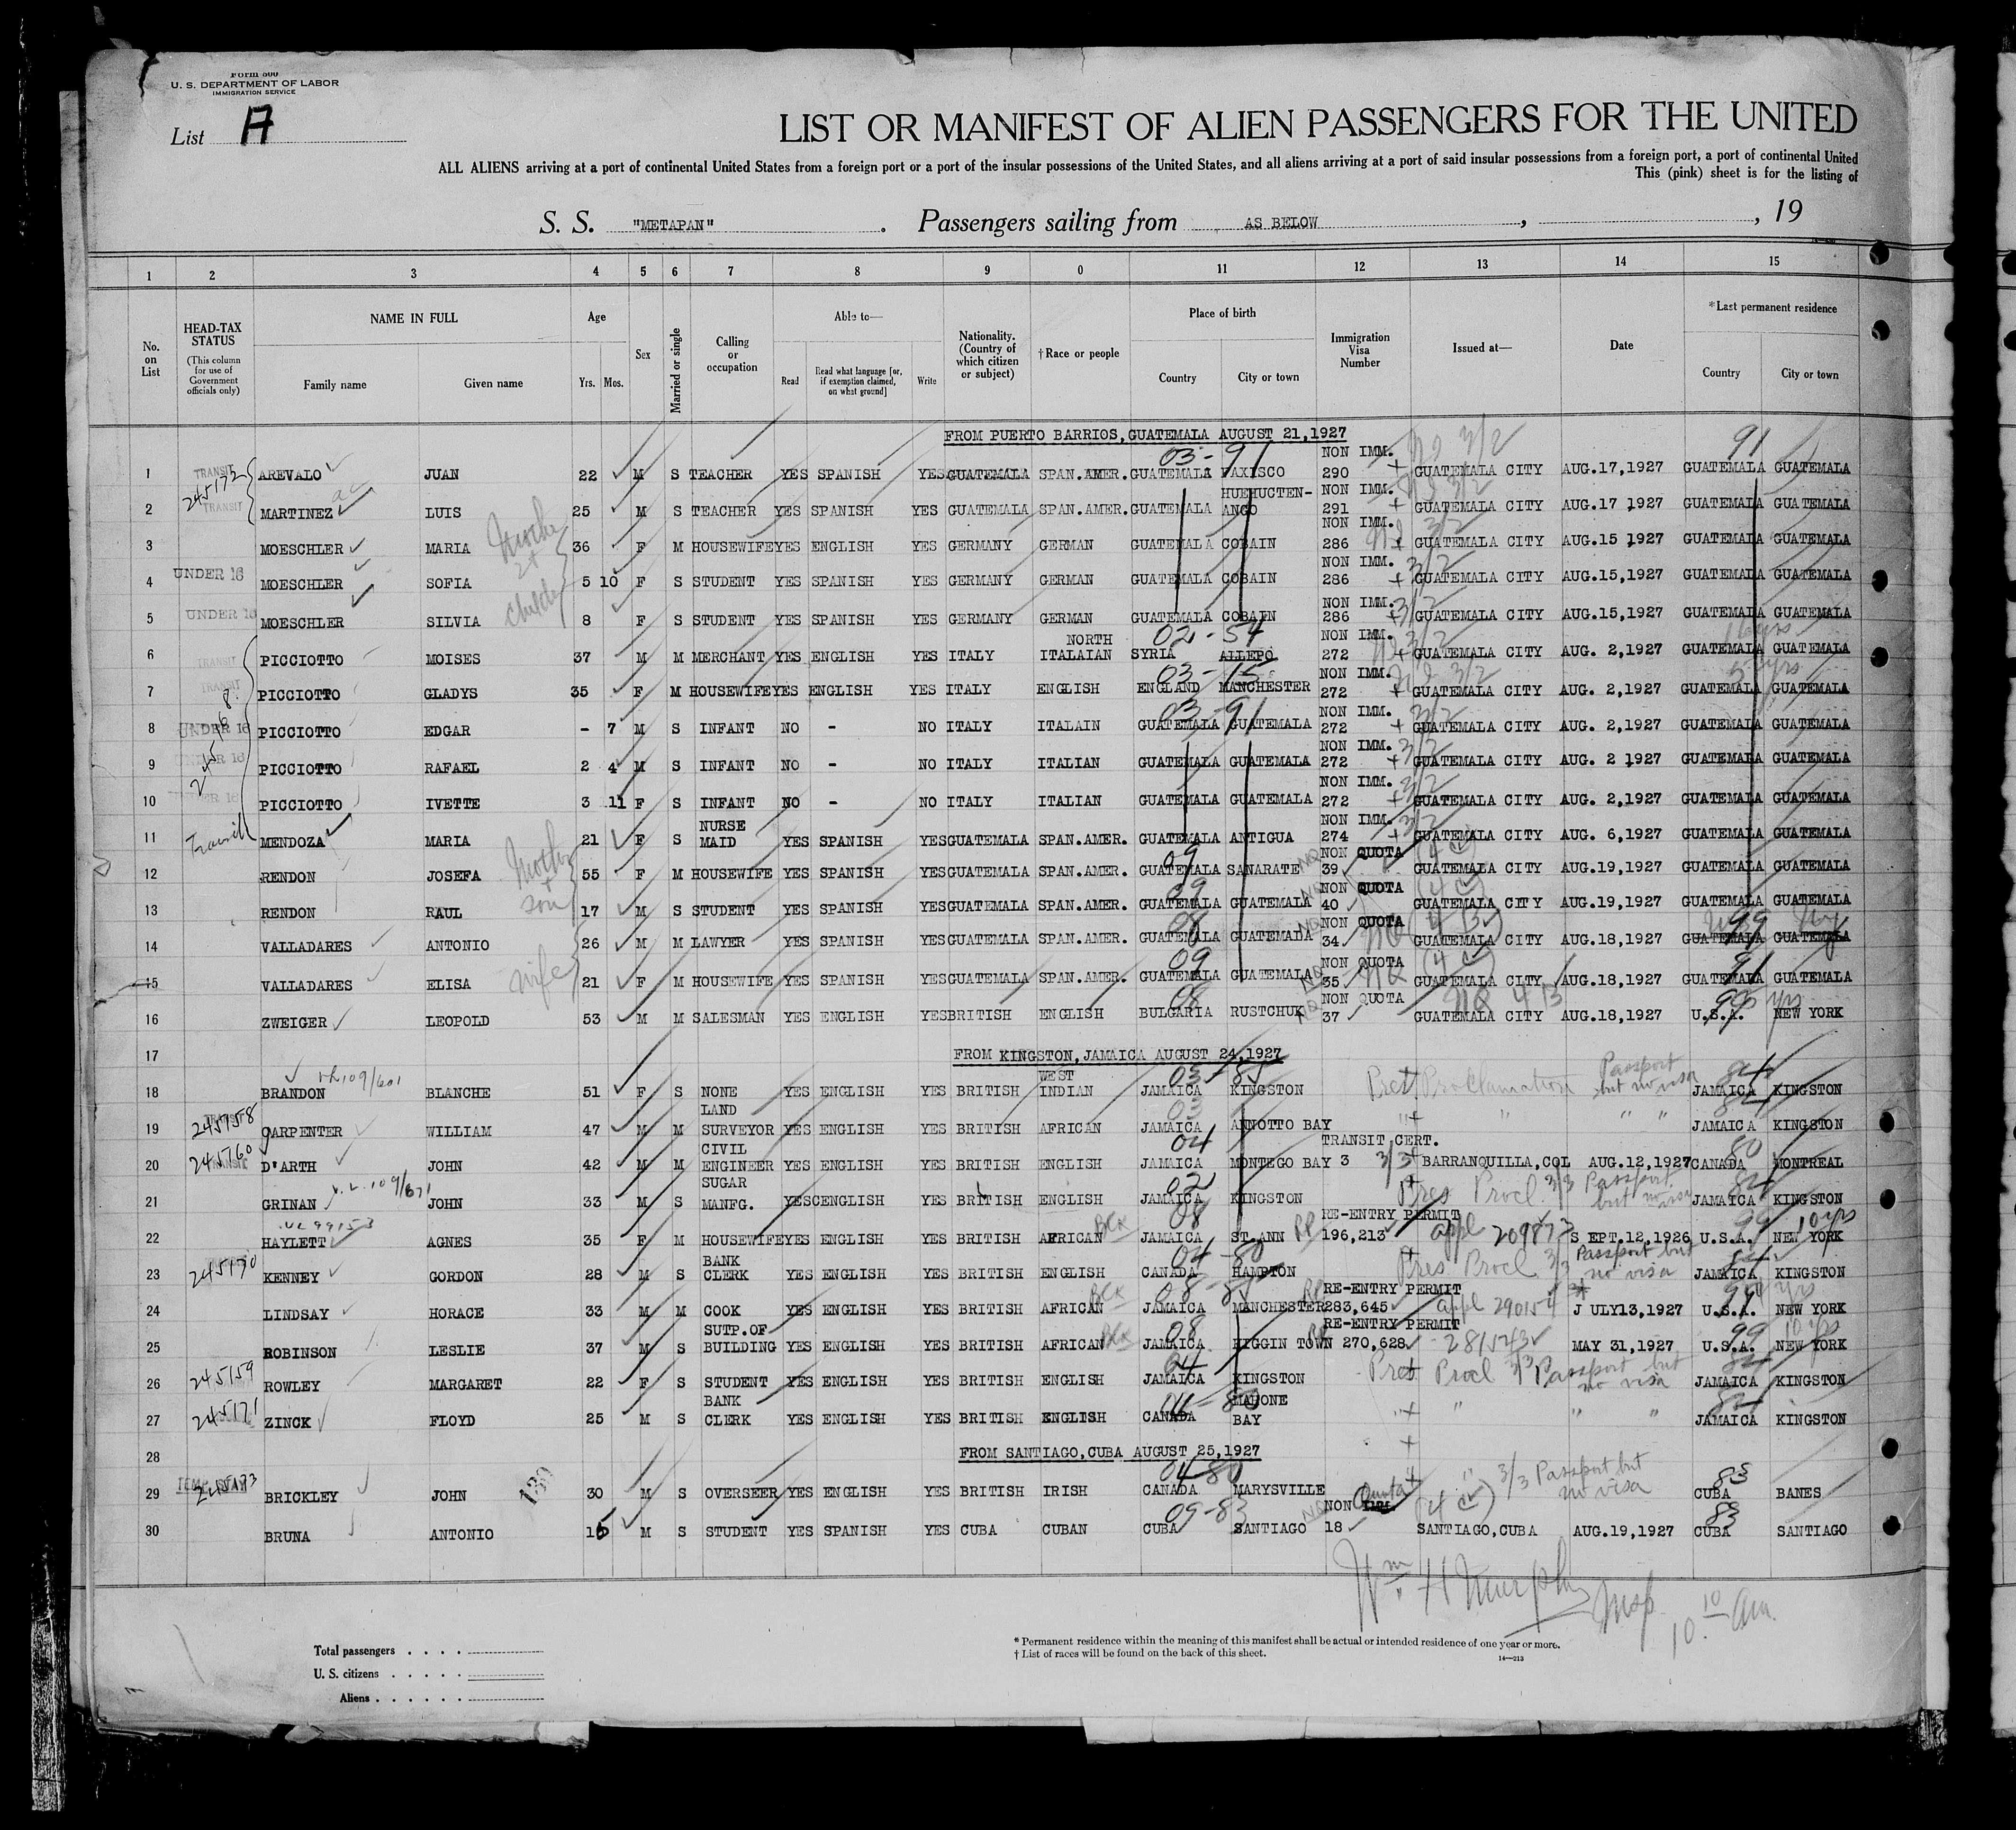 Form 500
U. S. DEPARTMENT OF LABOR
IMMIGRATION SERVICE
List A
LIST OR MANIFEST OF ALIEN PASSENGERS FOR THE UNITED
ALL ALIENS arriving at a port of continental United States from a foreign port or a port of the insular possessions of the United States, and all aliens arriving at a port of said insular possessions from a foreign port, a port of continental United
This (pink) sheet is for the listing of
S. S. "METAPAN". Passengers sailing from AS BELOW, , 19
1 2 3 4 5 6 7 8 9 0 11 12 13 14 15
No. on List HEAD-TAX STATUS (This column for use of Government officials only) NAME IN FULL Family name Given name Age Yrs. Mos. Sex Married or single Calling or occupation Able to— Read Read what language [or, if exemption claimed, on what ground] Write Nationality. (Country of which citizen or subject) †Race or people Place of birth Country City or town Immigration Visa Number Issued at— Date *Last permanent residence Country City or town
FROM PUERTO BARRIOS, GUATEMALA AUGUST 21,1927
03-91 91
1 TRANSIT 245172 AREVALO JUAN 22 M S TEACHER YES SPANISH YES GUATEMALA SPAN.AMER. GUATEMALA TAXISCO NON IMM. 290 GUATEMALA CITY AUG.17,1927 GUATEMALA GUATEMALA
2 TRANSIT MARTINEZ LUIS 25 M S TEACHER YES SPANISH YES GUATEMALA SPAN.AMER. GUATEMALA HUEHUCTEN-ANGO NON IMM. 291 GUATEMALA CITY AUG.17 1927 GUATEMALA GUATEMALA
3 MOESCHLER MARIA Mother 2+ childr 36 F M HOUSEWIFE YES ENGLISH YES GERMANY GERMAN GUATEMALA COBAIN NON IMM. 286 3/2 GUATEMALA CITY AUG.15 1927 GUATEMALA GUATEMALA
4 UNDER 16 MOESCHLER SOFIA 5 10 F S STUDENT YES SPANISH YES GERMANY GERMAN GUATEMALA COBAIN NON IMM. 286 3/2 GUATEMALA CITY AUG.15,1927 GUATEMALA GUATEMALA
5 UNDER 16 MOESCHLER SILVIA 8 F S STUDENT YES SPANISH YES GERMANY GERMAN GUATEMALA COBAIN NON IMM. 286 3/2 GUATEMALA CITY AUG.15,1927 GUATEMALA GUATEMALA
02-54
6 TRANSIT PICCIOTTO MOISES 37 M M MERCHANT YES ENGLISH YES ITALY NORTH ITALAIAN SYRIA ALLEPO NON IMM. 272 3/2 GUATEMALA CITY AUG. 2,1927 GUATEMALA GUATEMALA
03-15
7 TRANSIT PICCIOTTO GLADYS 35 F M HOUSEWIFE YES ENGLISH YES ITALY ENGLISH ENGLAND MANCHESTER NON IMM. 272 3/2 GUATEMALA CITY AUG. 2,1927 GUATEMALA GUATEMALA
03-91
8 UNDER 16 PICCIOTTO EDGAR - 7 M S INFANT NO - NO ITALY ITALAIN GUATEMALA GUATEMALA NON IMM. 272 3/2 GUATEMALA CITY AUG. 2,1927 GUATEMALA GUATEMALA
9 UNDER 16 PICCIOTTO RAFAEL 2 4 M S INFANT NO - NO ITALY ITALIAN GUATEMALA GUATEMALA NON IMM. 272 3/2 GUATEMALA CITY AUG. 2 1927 GUATEMALA GUATEMALA
10 UNDER 16 PICCIOTTO IVETTE 3 11 F S INFANT NO - NO ITALY ITALIAN GUATEMALA GUATEMALA NON IMM. 272 3/2 GUATEMALA CITY AUG. 2,1927 GUATEMALA GUATEMALA
11 Transit MENDOZA MARIA 21 F S NURSE MAID YES SPANISH YES GUATEMALA SPAN.AMER. GUATEMALA ANTIGUA NON IMM. 274 3/2 GUATEMALA CITY AUG. 6,1927 GUATEMALA GUATEMALA
09
12 RENDON JOSEFA Mother + son 55 F M HOUSEWIFE YES SPANISH YES GUATEMALA SPAN.AMER. GUATEMALA SANARATE NON QUOTA 39 GUATEMALA CITY AUG.19,1927 GUATEMALA GUATEMALA
09
13 RENDON RAUL 17 M S STUDENT YES SPANISH YES GUATEMALA SPAN.AMER. GUATEMALA GUATEMALA NON QUOTA 40 GUATEMALA CITY AUG.19,1927 GUATEMALA GUATEMALA
08 99
14 VALLADARES ANTONIO 26 M M LAWYER YES SPANISH YES GUATEMALA SPAN.AMER. GUATEMALA GUATEMADA NON QUOTA 34 NQ (4 B) GUATEMALA CITY AUG.18,1927 GUATEMALA GUATEMALA
09 91
15 VALLADARES ELISA wife 21 F M HOUSEWIFE YES SPANISH YES GUATEMALA SPAN.AMER. GUATEMALA GUATEMALA NON QUOTA 35 NQ GUATEMALA CITY AUG.18,1927 GUATEMALA GUATEMALA
08 NQ 4 B
16 ZWEIGER LEOPOLD 53 M M SALESMAN YES ENGLISH YES BRITISH ENGLISH BULGARIA RUSTCHUK NON QUOTA 37 GUATEMALA CITY AUG.18,1927 U.S.A. NEW YORK
17 FROM KINGSTON, JAMAICA AUGUST 24,1927
03-85
18 BRANDON BLANCHE 51 F S NONE YES ENGLISH YES BRITISH WEST INDIAN JAMAICA KINGSTON Pres Proclamation Passport but no visa JAMAICA KINGSTON
03
19 TRANSIT 245158 CARPENTER WILLIAM 47 M M LAND SURVEYOR YES ENGLISH YES BRITISH AFRICAN JAMAICA ANNOTTO BAY " " " " JAMAICA KINGSTON
04 80
20 TRANSIT 245160 D'ARTH JOHN 42 M M CIVIL ENGINEER YES ENGLISH YES BRITISH ENGLISH JAMAICA MONTEGO BAY TRANSIT CERT. 3 3/3 BARRANQUILLA,COL AUG.12,1927 CANADA MONTREAL
02
21 GRINAN JOHN 33 M S SUGAR MANFG. YES ENGLISH YES BRITISH ENGLISH JAMAICA KINGSTON Pres Procl. 3/3 Passport but no visa JAMAICA KINGSTON
08 99 10 yrs
22 HAYLETT AGNES 35 F M HOUSEWIFE YES ENGLISH YES BRITISH AFRICAN JAMAICA ST.ANN RP RE-ENTRY PERMIT 196,213 appl 209873 SEPT.12,1926 U.S.A. NEW YORK
04-80
23 245170 KENNEY GORDON 28 M S BANK CLERK YES ENGLISH YES BRITISH ENGLISH CANADA HAMPTON Pres Procl. 3/3 Passport but no visa JAMAICA KINGSTON
24 LINDSAY HORACE 33 M M COOK YES ENGLISH YES BRITISH AFRICAN JAMAICA MANCHESTER RE-ENTRY PERMIT 283,645 appl 290154 JULY13,1927 U.S.A. NEW YORK
08 99 10 yrs
25 ROBINSON LESLIE 37 M S SUTP.OF BUILDING YES ENGLISH YES BRITISH AFRICAN JAMAICA HIGGIN TOWN RE-ENTRY PERMIT 270,628 281543 MAY 31,1927 U.S.A. NEW YORK
26 245159 ROWLEY MARGARET 22 F S STUDENT YES ENGLISH YES BRITISH ENGLISH JAMAICA KINGSTON Pres Procl 3/3 Passport but no visa JAMAICA KINGSTON
27 245171 ZINCK FLOYD 25 M S BANK CLERK YES ENGLISH YES BRITISH ENGLISH CANADA MAHONE BAY " " " " JAMAICA KINGSTON
28 FROM SANTIAGO,CUBA AUGUST 25,1927
04-80 83
29 BRICKLEY JOHN 130 30 M S OVERSEER YES ENGLISH YES BRITISH IRISH CANADA MARYSVILLE " 3/3 Passport but no visa CUBA BANES
09-83 83
30 BRUNA ANTONIO 15 M S STUDENT YES SPANISH YES CUBA CUBAN CUBA SANTIAGO NON IMM. Quota 18 SANTIAGO,CUBA AUG.19,1927 CUBA SANTIAGO
Wm H Murphy Insp
10 10 am.
Total passengers . . . .
U. S. citizens . . . . .
Aliens . . . . . .
* Permanent residence within the meaning of this manifest shall be actual or intended residence of one year or more.
† List of races will be found on the back of this sheet.
14—213